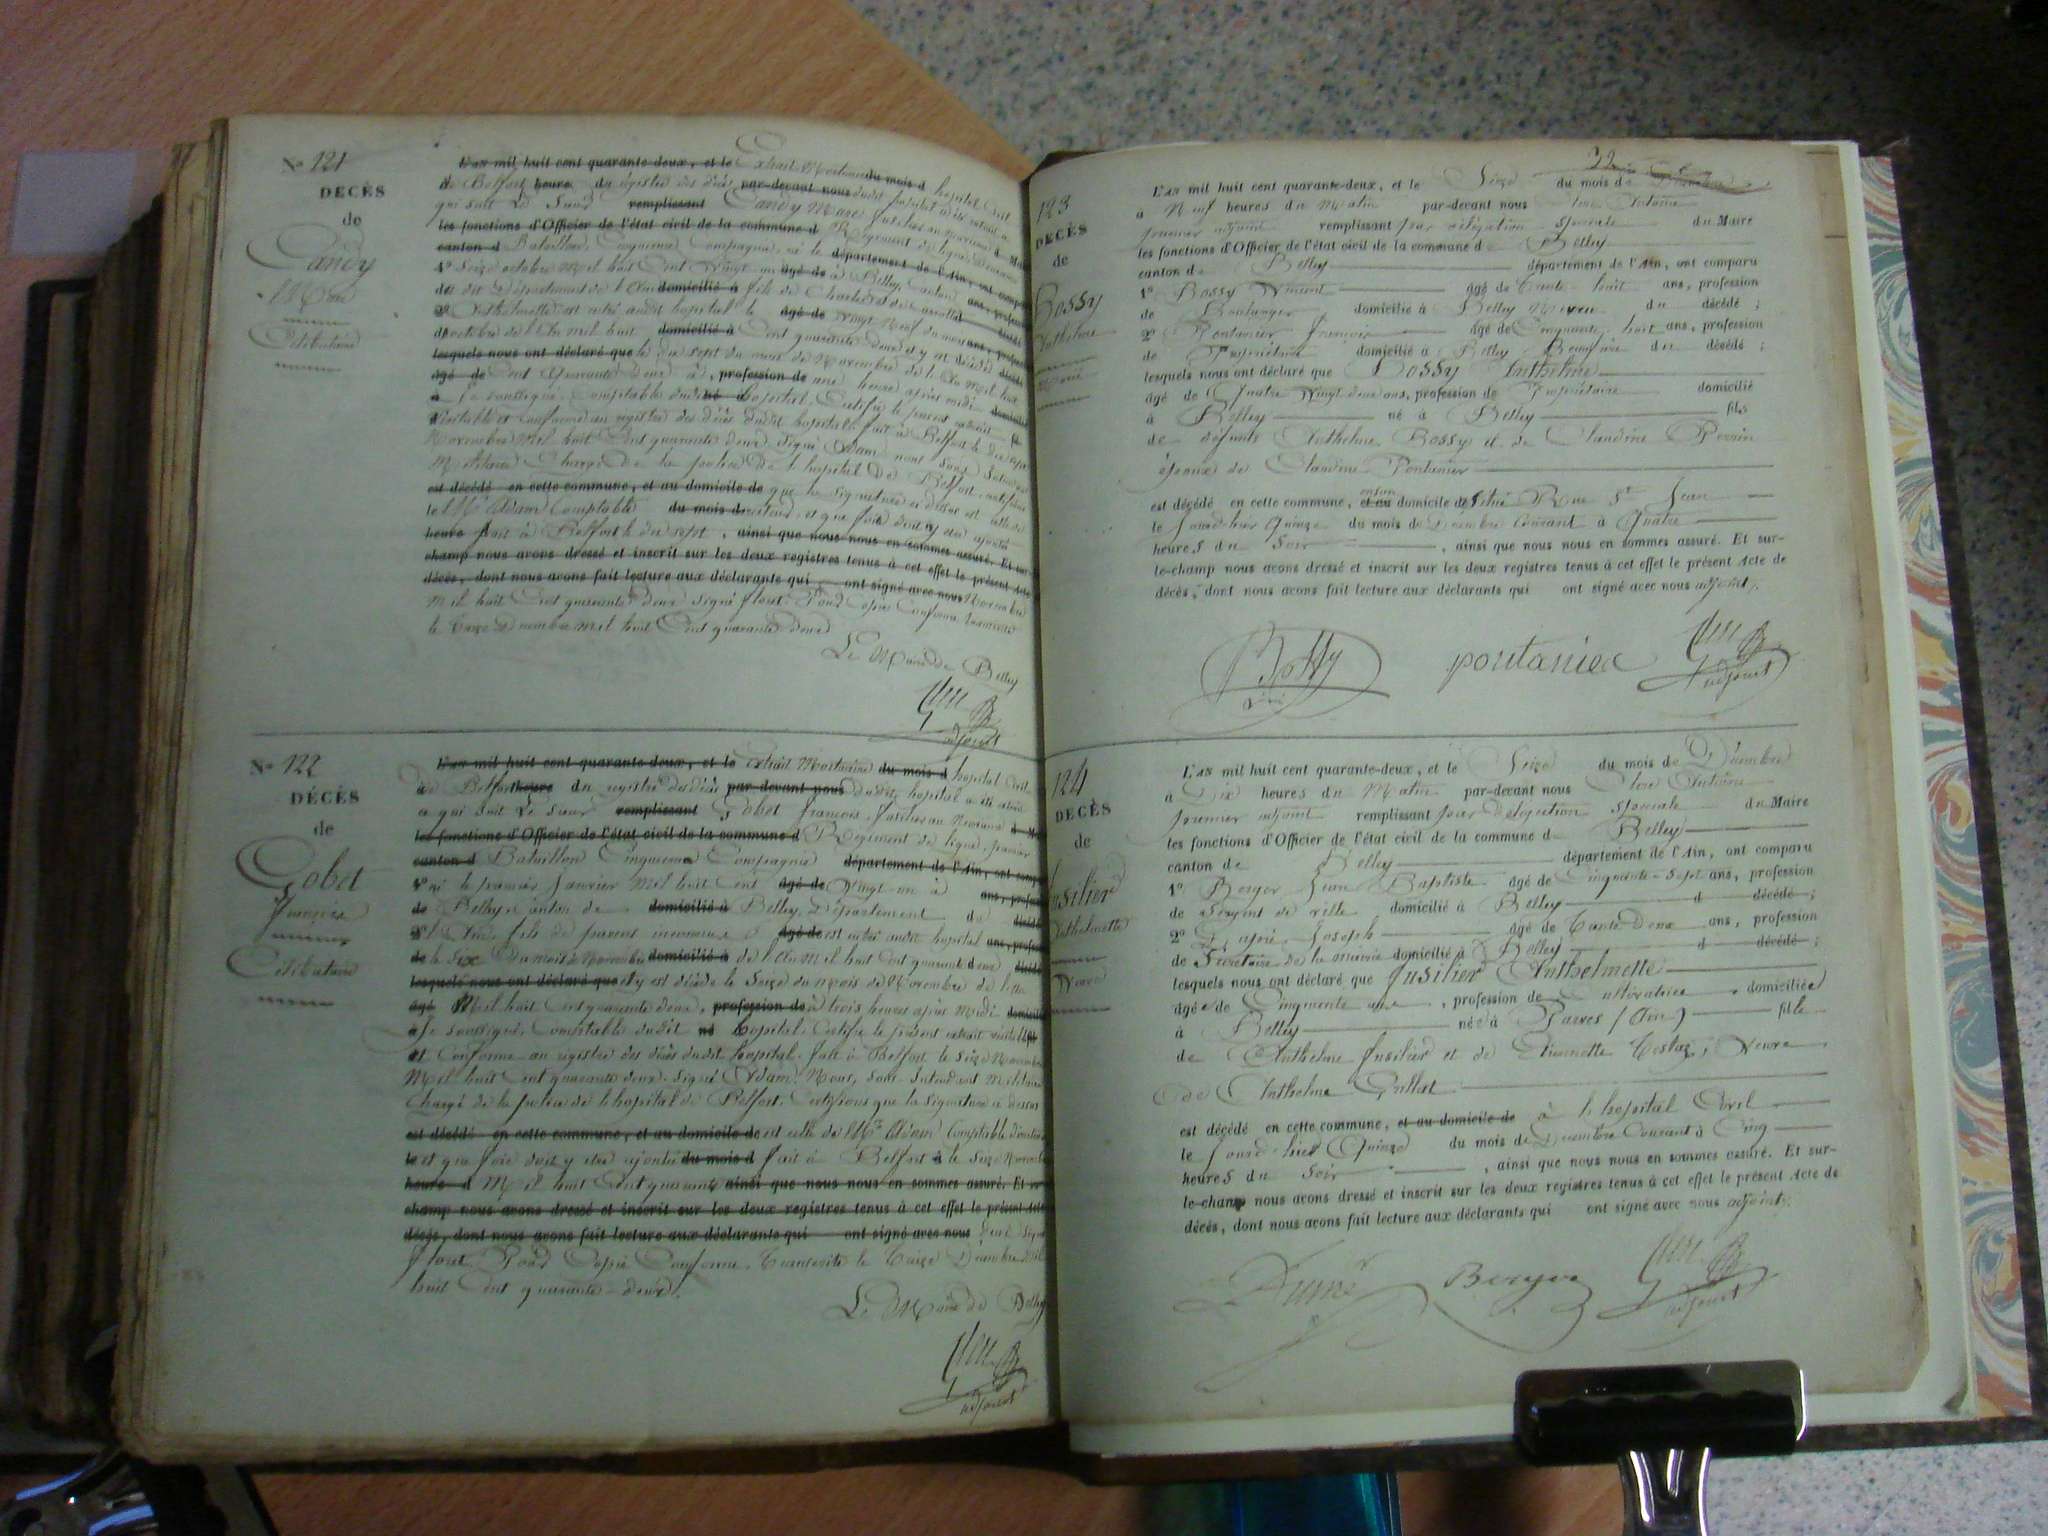 No 121
DECÈS
de
Candy
Marc
Célibataire
L'an mil huit cent quarante-deux, et le Extrait Mortuaire du mois d hopital Civil
de Belfort heure du régistre des décès par-devant nous dudit hopital a été extrait
qui suit Le Sieur remplissant Candy Marc fusilier au
les fonctions d'Officier de l'état civil de la commune d Régiment de ligne
canton d Bataillon Cinquieme Compagnie né le département de l'Ain, ont comparu
1o Seize octobre Mil huit Cent Vingt un agé de à Belley, Canton ans, profession
de dit Département de l'Ain domicilié à fils de Charles et de
2o Anthelmette est entré audit hopital le agé de Vingt Neuf du mois ans, profession
d'octobre de l'An mil huit domicilié à Cent quarante deux et y est décédé
lesquels nous ont déclaré que le dix sept du mois de Novembre de l'An mil huit
agé de Cent Quarante Deux à, profession de une heure après midi
à Je soussigné, Comptable dudit né à hopital, Certifie le présent extrait
Véritable et Conforme au registre des décès dudit hopital. fait à Belfort le dix sept
Novembre Mil huit Cent quarante deux. Signé Adam nous Sous Intendant
Militaire Chargé de la police de l'hopital de Belfort, certifions
est décédé en cette commune, et au domicile de que la signature ci dessus est celle de
le Mr Adam Comptable du mois d et que foi doit y être ajoutée
heure fait à Belfort le dix sept, ainsi que nous nous en sommes assuré. Et sur-
champ nous avons dressé et inscrit sur les deux registres tenus à cet effet le présent Acte
décès, dont nous avons fait lecture aux déclarants qui ont signé avec nous Novembre
Mil huit Cent quarante deux signé flout. Pour Copie Conforme transcrite
le treize Decembre Mil huit Cent quarante deux
Le Maire de Belley
adjoint
No 122
DÉCÈS
de
Gobet
François
Célibataire
L'an mil huit cent quarante-deux, et le extrait Mortuaire du mois d hopital Civil
de Belfort heure du registre des décès par-devant nous dudit hopital a été extrait
ce qui suit Le Sieur remplissant Gobet françois, fusilier au Neuvieme
les fonctions d'Officier de l'état civil de la commune d Régiment de ligne, premier
canton d Bataillon Cinquieme Compagnie département de l'Ain, ont comparu
1o né le premier Janvier Mil huit Cent agé de Vingt un à ans, profession
de Belley canton de domicilié à Belley, Département de décédé
2o l'Ain fils de parens inconnus agé de est entré audit hopital ans, profession
de le Six du mois de Novembre domicilié à de l'An Mil huit Cent quarante deux
lesquels nous ont déclaré que et y est décédé le Seize du mois de Novembre de l'An
agé Mil huit Cent quarante deux, profession de à trois heures après Midi domicilié
à Je soussigné, Comptable dudit né hopital, Certifie le présent extrait véritable
et Conforme au registre des décès dudit hopital. fait à Belfort, le seize Novembre
Mil huit Cent quarante deux. signé Adam. Nous, Sous-Intendant Militaire
Chargé de la police de l'hopital de Belfort, Certifions que la signature ci dessus
est décédé en cette commune, et au domicile de est celle de Mr Adam Comptable
le et que foi doit y être ajoutée du mois d fait à Belfort à le Seize Novembre
heure d Mil huit Cent quarante ainsi que nous nous en sommes assuré. Et sur-
champ nous avons dressé et inscrit sur les deux registres tenus à cet effet le présent Acte
décès, dont nous avons fait lecture aux déclarants qui ont signé avec nous deux signé
flout. Pour Copie Conforme Transcrite le treize Décembre Mil
huit Cent quarante-deux.
Le Maire de Belley
adjoint
123
DECÈS
de
Bossy
Anthelme
Marié
L'an mil huit cent quarante-deux, et le Seize du mois de Décembre
à Neuf heures du Matin par-devant nous Antoine
premier adjoint remplissant par délégation spéciale du Maire
les fonctions d'Officier de l'état civil de la commune d Belley
canton de Belley département de l'Ain, ont comparu
1o Bossy Vincent agé de trente huit ans, profession
de Boulanger domicilié à Belley Neveu du décédé ;
2o Pontanier françois agé de Cinquante huit ans, profession
de Propriétaire domicilié à Belley Beaufrère du décédé ;
lesquels nous ont déclaré que Bossy Anthelme
agé de Quatre Vingt deux ans, profession de Propriétaire domicilié
à Belley né à Belley fils
de défunts Anthelme Bossy et de Claudine Perrin
époux de Claudine Pontanier
est décédé en cette commune, et au domicile de en son située Rue St Jean
le Jour d'hier Quinze du mois de Décembre Courant à Quatre
heures du Soir , ainsi que nous nous en sommes assuré. Et sur-
le-champ nous avons dressé et inscrit sur les deux registres tenus à cet effet le présent Acte de
décès, dont nous avons fait lecture aux déclarants qui ont signé avec nous adjoint.
Bossy
pontanier
adjoint
124
DECÈS
de
fusilier
Anthelmette
Veuve
L'an mil huit cent quarante-deux, et le Seize du mois de Décembre
à Dix heures du Matin par-devant nous Antoine
premier adjoint remplissant par délégation spéciale du Maire
les fonctions d'Officier de l'état civil de la commune d Belley
canton de Belley département de l'Ain, ont comparu
1o Berger Jean Baptiste agé de Cinquante-Sept ans, profession
de Sergent de ville domicilié à Belley d décédé ;
2o Joseph agé de trente Deux ans, profession
de Secrétaire de la mairie domicilié à Belley d décédé ;
lesquels nous ont déclaré que fusilier Anthelmette
agée de Cinquante une, profession de Cultivatrice, domiciliée
à Belley née à Parves (Ain) fille
de Anthelme fusilier et de Etiennette Costaz, Veuve
de Anthelme Guillot
est décédé en cette commune, et au domicile de à l'hopital Civil
le Jour d'hier Quinze du mois de Décembre Courant à Cinq
heures du Soir , ainsi que nous nous en sommes assuré. Et sur-
le-champ nous avons dressé et inscrit sur les deux registres tenus à cet effet le présent Acte de
décès, dont nous avons fait lecture aux déclarants qui ont signé avec nous adjoint.
Berger
adjoint